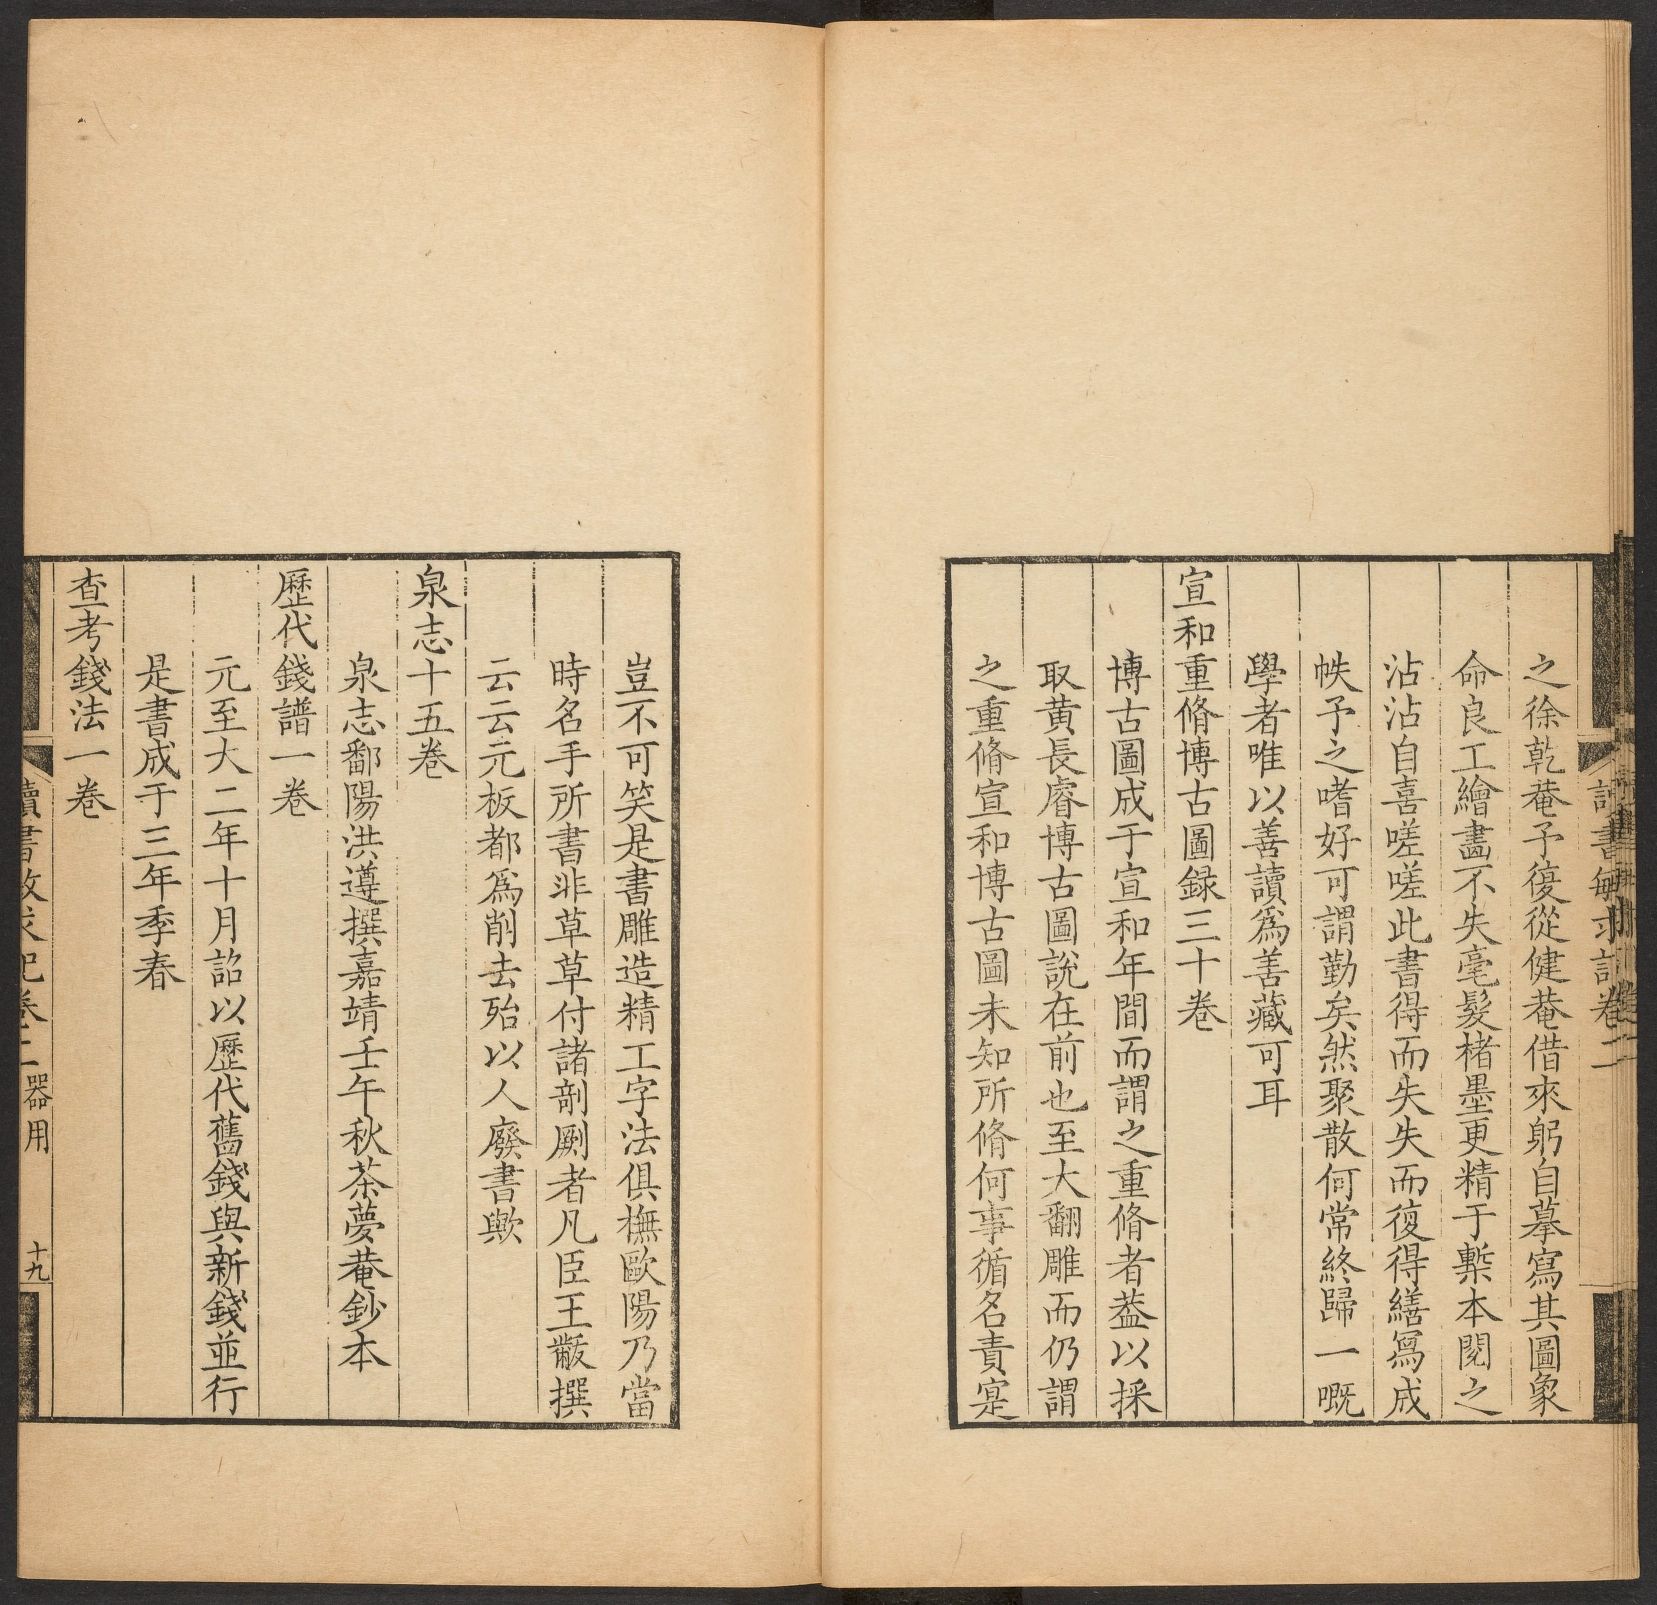 讀書敏求記卷二
之徐乾菴予復從健菴借來躬自摹寫其圖象
命良工繪畫不失毫髮楮墨更精于槧本閱之
沾沾自喜嗟嗟此書得而失失而復得繕寫成
帙予之嗜好可謂勤矣然聚散何常終歸一嘅
學者唯以善讀爲善藏可耳
宣和重脩博古圖録三十卷
博古圖成于宣和年間而謂之重脩者葢以採
取黄長睿博古圖說在前也至大翻雕而仍謂
之重脩宣和博古圖未知所脩何事循名責寔
豈不可笑是書雕造精工字法俱橅歐陽乃當
時名手所書非草草付諸剞劂者凡臣王黼撰
云云元板都爲削去殆以人廢書歟
泉志十五卷
泉志鄱陽洪遵撰嘉靖壬午秋茶夢菴鈔本
歷代錢譜一卷
元至大二年十月詔以歷代舊錢與新錢並行
是書成于三年季春
查考錢法一卷
讀書敏求記卷二 器用 十九